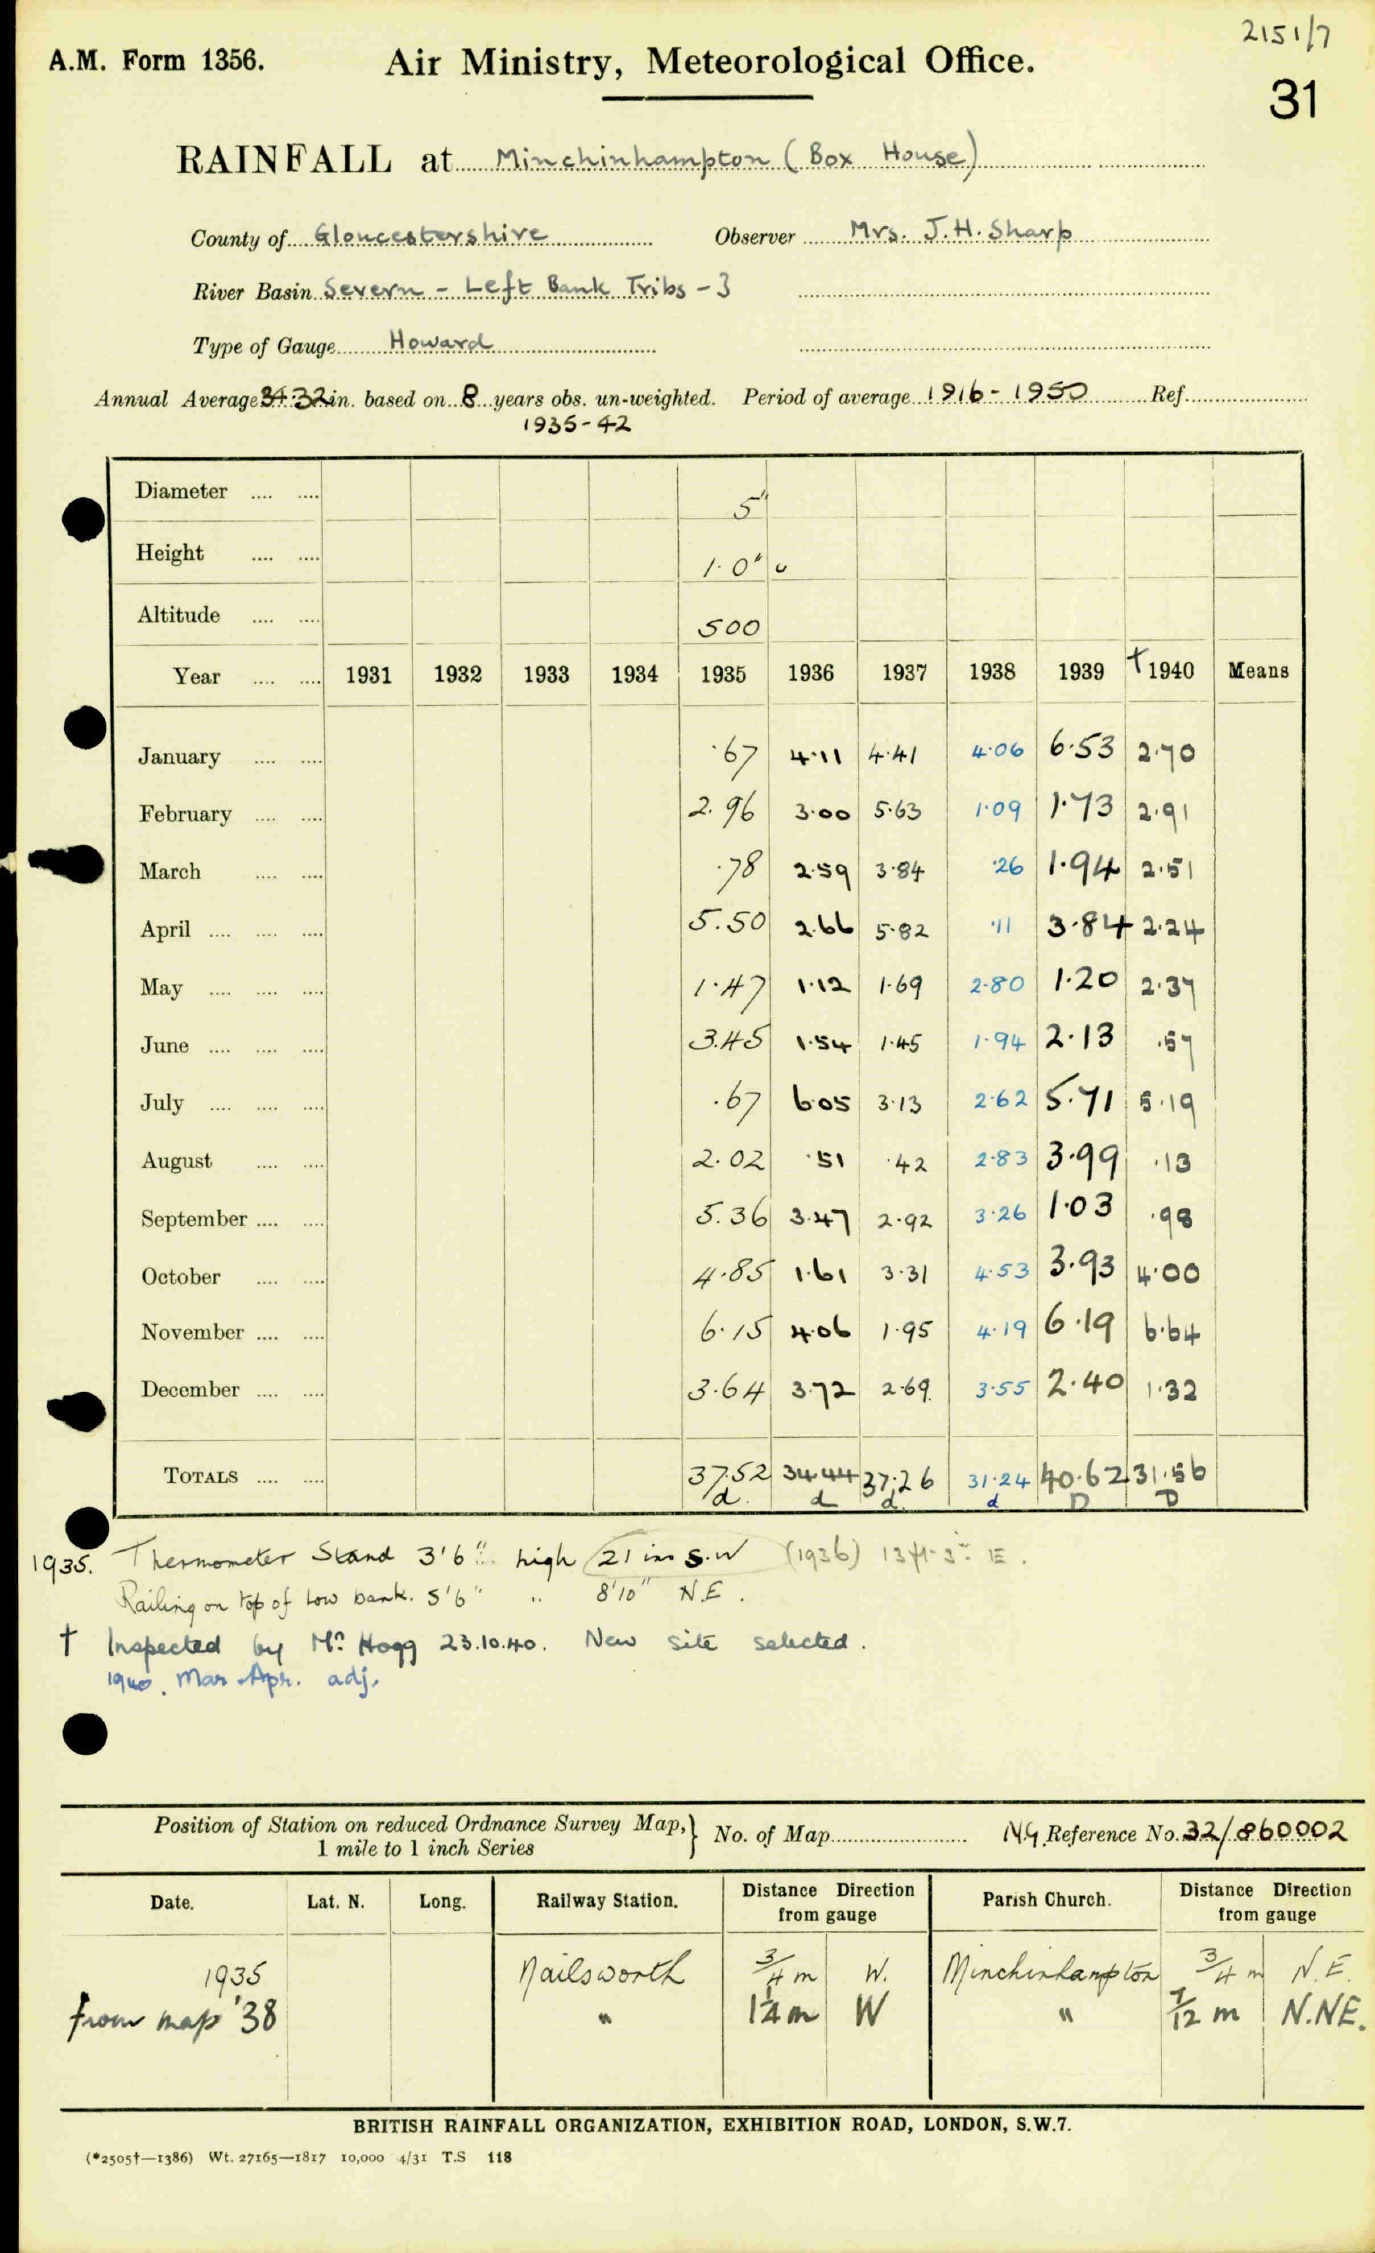 2151/7
A.M. Form 1356. Air Ministry, Meteorological Office.
31
RAINFALL at Minchinhampton (Box House)
County of Gloucestershire Observer Mrs. J.H. Sharp
River Basin Severn - Left Bank Tribs - 3
Type of Gauge Howard
Annual Average 34.32 in. based on 8 years obs. un-weighted. Period of average 1916 - 1950 Ref.
1935-42
Diameter 5"
Height 1.0"
Altitude 500
Year 1931 1932 1933 1934 1935 1936 1937 1938 1939 †1940 Means
January .67 4.11 4.41 4.06 6.53 2.70
February 2.96 3.00 5.63 1.09 1.73 2.91
March .78 2.59 3.84 .26 1.94 2.51
April 5.50 2.66 5.82 .11 3.84 2.24
May 1.47 1.12 1.69 2.80 1.20 2.37
June 3.45 1.54 1.45 1.94 2.13 .57
July .67 6.05 3.13 2.62 5.71 5.19
August 2.02 .51 .42 2.83 3.99 .13
September 5.36 3.47 2.92 3.26 1.03 .98
October 4.85 1.61 3.31 4.53 3.93 4.00
November 6.15 4.06 1.95 4.19 6.19 6.64
December 3.64 3.72 2.69 3.55 2.40 1.32
TOTALS 37.52 34.44 37.26 31.24 40.62 31.56
d d d d D D
1935. Thermometer Stand 3'6" high 21 ins S.W (1936) 13ft. 3" E.
Railing on top of low bank. 5'6" " 8'10" N.E.
† Inspected by Mr. Hogg 23.10.40. New site selected.
1940. Mar Apr. adj.
Position of Station on reduced Ordnance Survey Map, } No. of Map NG Reference No. 32/860002
1 mile to 1 inch Series
Date. Lat. N. Long. Railway Station. Distance Direction from gauge Parish Church. Distance Direction from gauge
1935 Nailsworth 3/4 m W. Minchinhampton 3/4 m N.E.
from map '38 " 1 1/4 m W " 7/12 m N.NE.
BRITISH RAINFALL ORGANIZATION, EXHIBITION ROAD, LONDON, S.W.7.
(*2505†—1386) Wt. 27165—1817 10,000 4/31 T.S 118